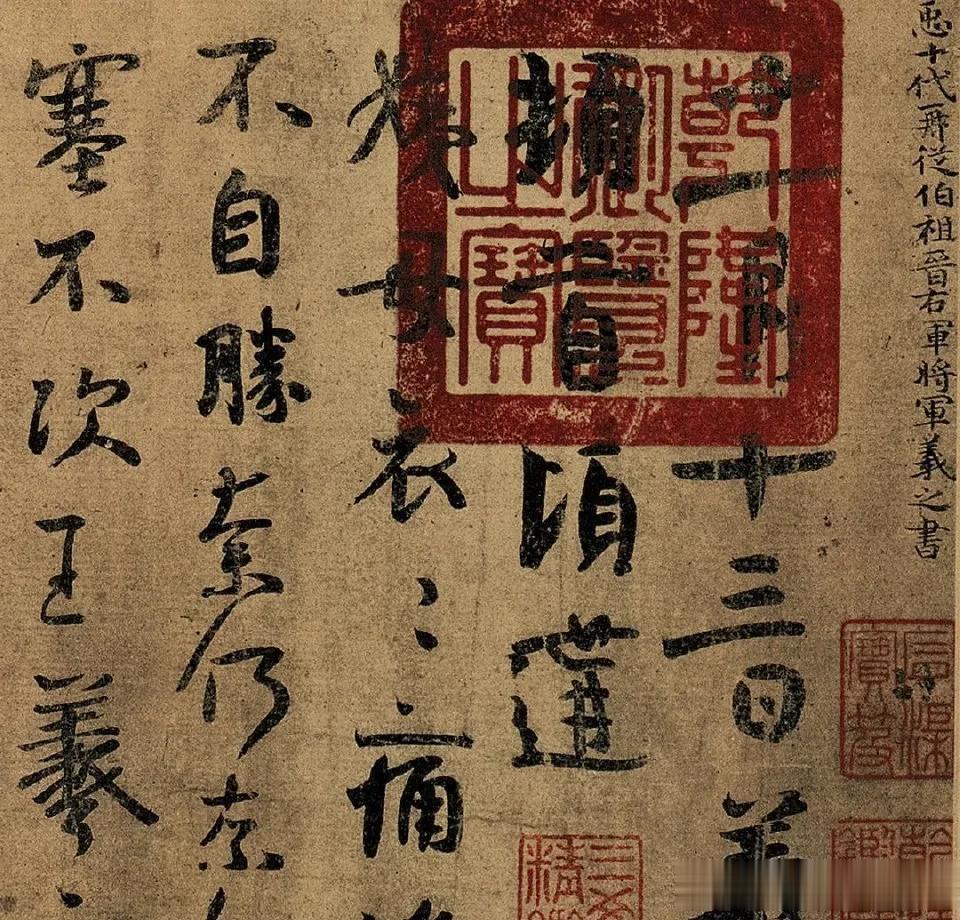 𢘑十代再從伯祖晉右軍將軍羲之書
十一月十三日羲
頓首頃遘
姨母哀〻痛
不自勝奈何奈
塞不次王羲之
乾隆
御覽
之寶
石渠
寶笈
三希
精